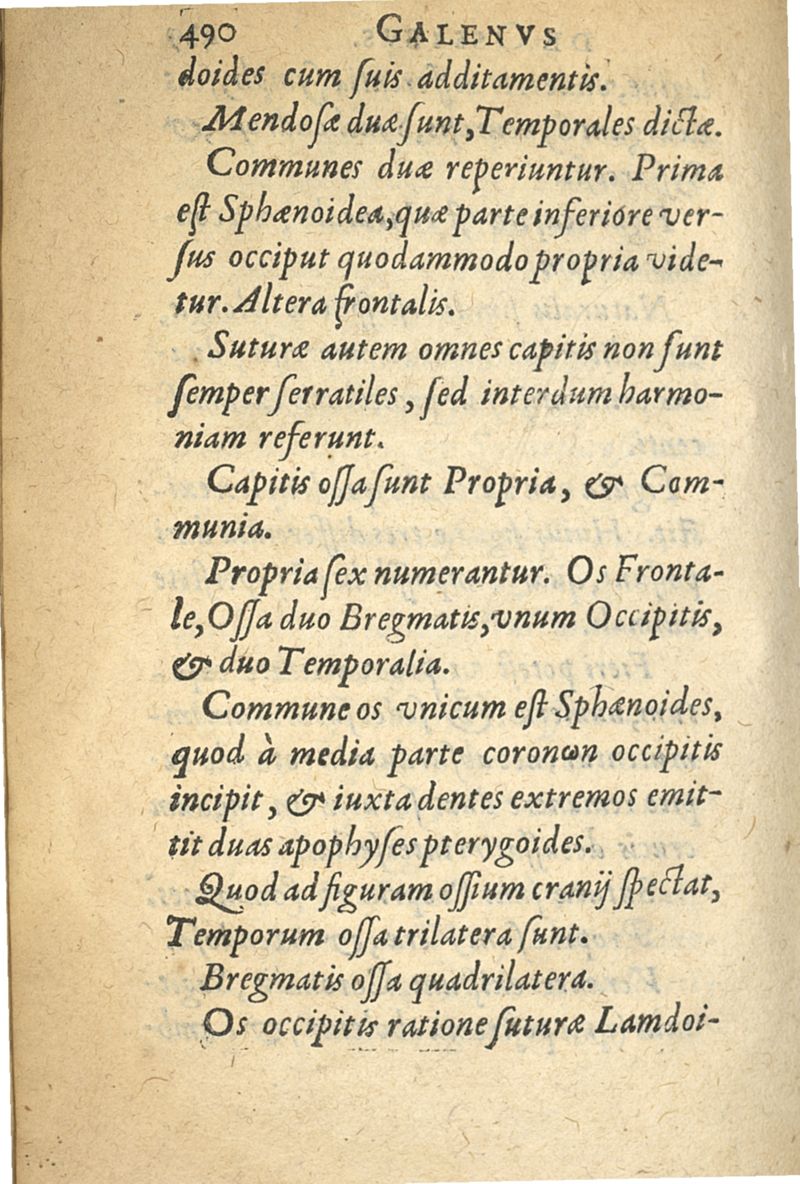 490 GALENVS
doides cum ſuis additamentis.
Mendoſæ duæ ſunt, Temporales dictæ.
Communes duæ reperiuntur. Prima
eſt Sphænoidea, quæ parte inferiore ver-
ſus occiput quodammodo propria vide-
tur. Altera frontalis.
Suturæ autem omnes capitis non ſunt
ſemper ſerratiles, ſed interdum harmo-
niam referunt.
Capitis oſſa ſunt Propria, & Com-
munia.
Propria ſex numerantur. Os Fronta-
le, Oſſa duo Bregmatis, vnum Occipitis,
& duo Temporalia.
Commune os vnicum eſt Sphænoides,
quod à media parte coronωn occipitis
incipit, & iuxta dentes extremos emit-
tit duas apophyſes pterygoides.
Quod ad figuram oſſium cranij ſpectat,
Temporum oſſa trilatera ſunt.
Bregmatis oſſa quadrilatera.
Os occipitis ratione ſuturæ Lamdoi-